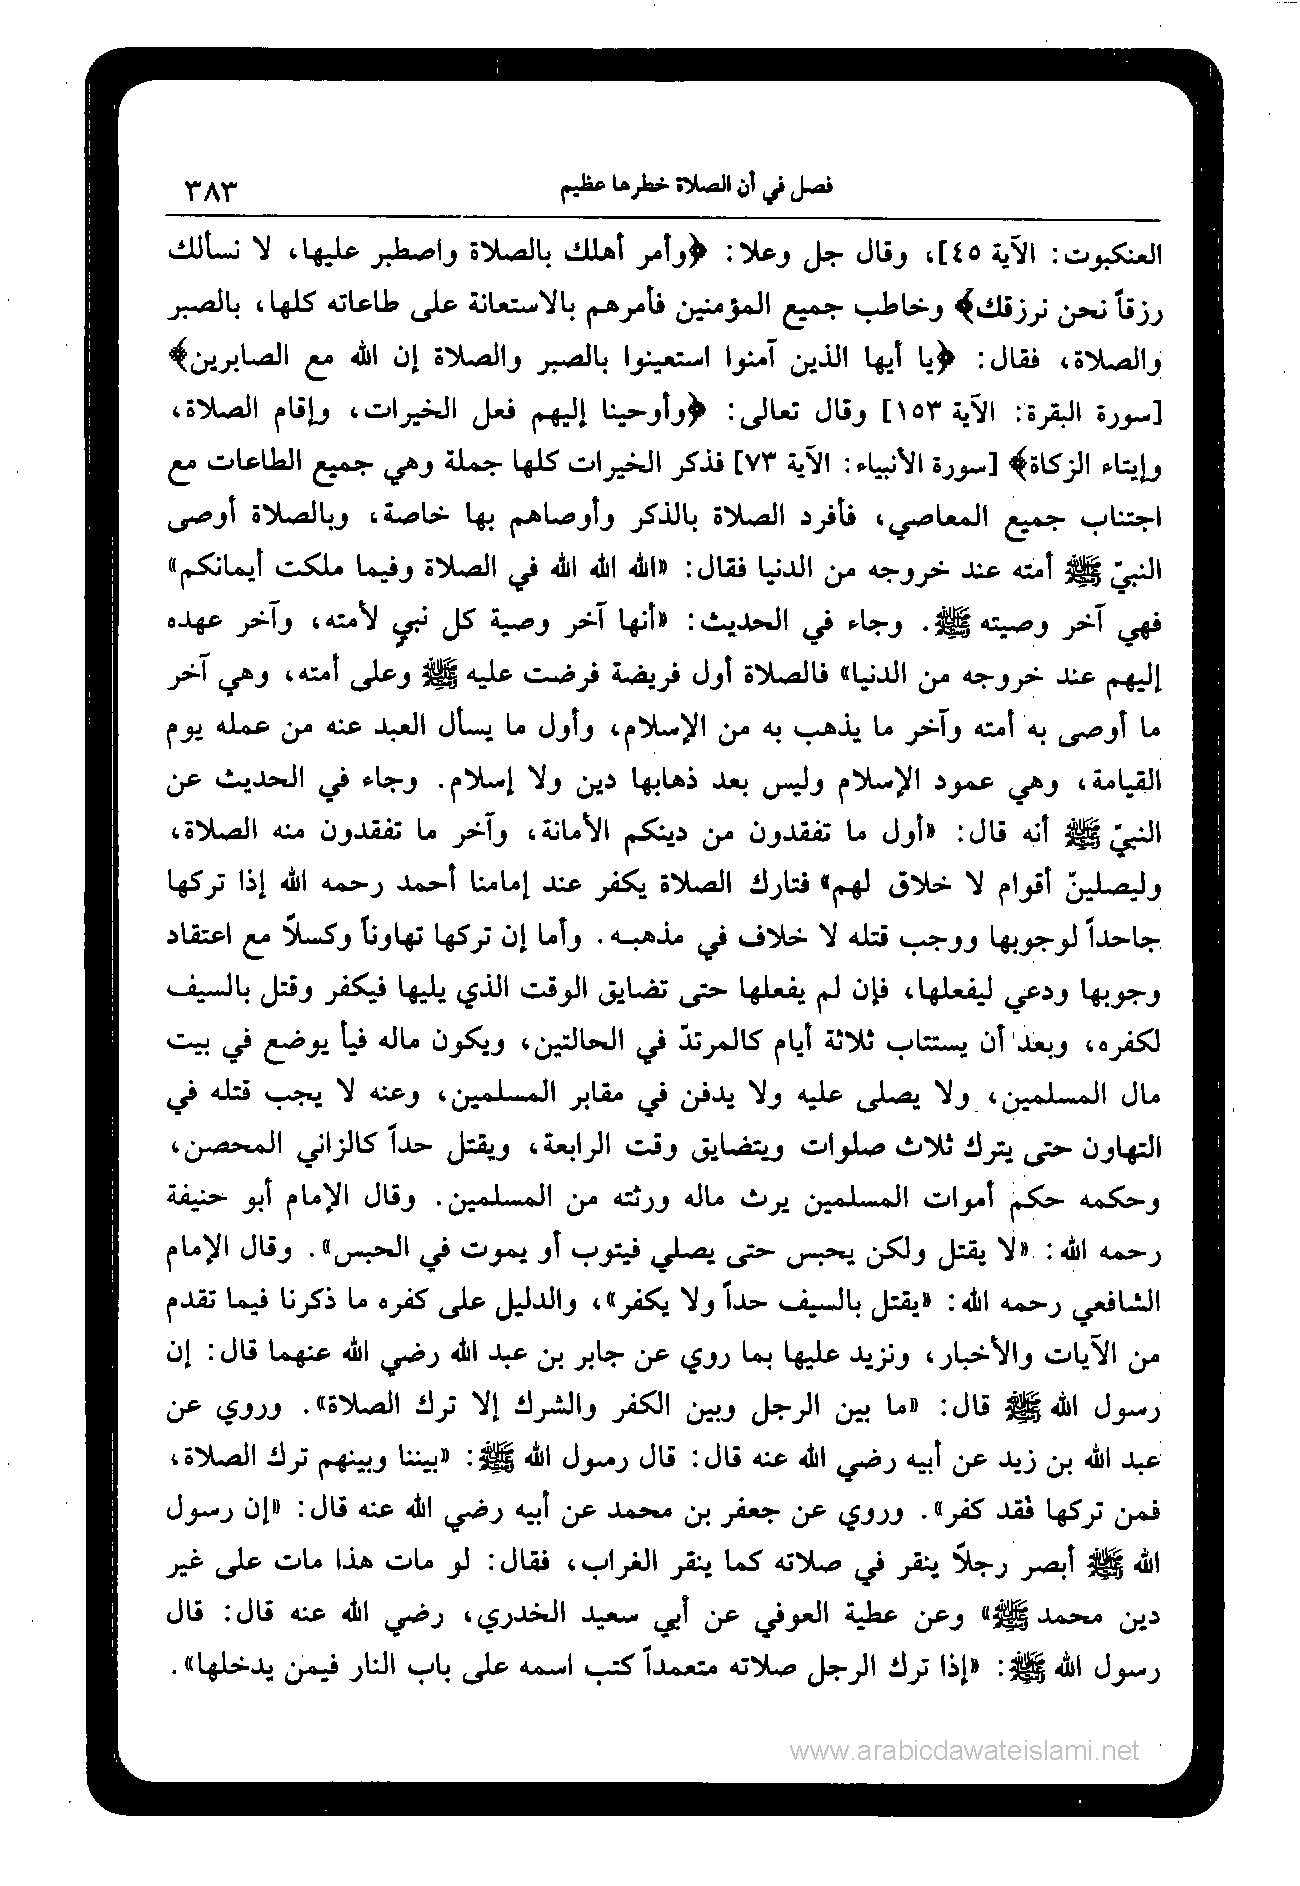 فصل في أن الصلاة خطرها عظيم ٣٨٣
العنكبوت: الآية ٤٥]، وقال جل وعلا: ﴿وأمر أهلك بالصلاة واصطبر عليها، لا نسألك
رزقاً نحن نرزقك﴾ وخاطب جميع المؤمنين فأمرهم بالاستعانة على طاعاته كلها، بالصبر
والصلاة، فقال: ﴿يا أيها الذين آمنوا استعينوا بالصبر والصلاة إن الله مع الصابرين﴾
[سورة البقرة: الآية ١٥٣] وقال تعالى: ﴿وأوحينا إليهم فعل الخيرات، وإقام الصلاة،
وإيتاء الزكاة﴾ [سورة الأنبياء: الآية ٧٣] فذكر الخيرات كلها جملة وهي جميع الطاعات مع
اجتناب جميع المعاصي، فأفرد الصلاة بالذكر وأوصاهم بها خاصة، وبالصلاة أوصى
النبيّ ﷺ أمته عند خروجه من الدنيا فقال: «الله الله الله في الصلاة وفيما ملكت أيمانكم»
فهي آخر وصيته ﷺ. وجاء في الحديث: «أنها آخر وصية كل نبي لأمته، وآخر عهده
إليهم عند خروجه من الدنيا» فالصلاة أول فريضة فرضت عليه ﷺ وعلى أمته، وهي آخر
ما أوصى به أمته وآخر ما يذهب به من الإسلام، وأول ما يسأل العبد عنه من عمله يوم
القيامة، وهي عمود الإسلام وليس بعد ذهابها دين ولا إسلام. وجاء في الحديث عن
النبيّ ﷺ أنه قال: «أول ما تفقدون من دينكم الأمانة، وآخر ما تفقدون منه الصلاة،
وليصلينّ أقوام لا خلاق لهم» فتارك الصلاة يكفر عند إمامنا أحمد رحمه الله إذا تركها
جاحداً لوجوبها ووجب قتله لا خلاف في مذهبه. وأما إن تركها تهاوناً وكسلاً مع اعتقاد
وجوبها ودعي ليفعلها، فإن لم يفعلها حتى تضايق الوقت الذي يليها فيكفر وقتل بالسيف
لكفره، وبعد أن يستتاب ثلاثة أيام كالمرتدّ في الحالتين، ويكون ماله فيأ يوضع في بيت
مال المسلمين، ولا يصلى عليه ولا يدفن في مقابر المسلمين، وعنه لا يجب قتله في
التهاون حتى يترك ثلاث صلوات ويتضايق وقت الرابعة، ويقتل حداً كالزاني المحصن،
وحكمه حكم أموات المسلمين يرث ماله ورثته من المسلمين. وقال الإمام أبو حنيفة
رحمه الله: «لا يقتل ولكن يحبس حتى يصلي فيتوب أو يموت في الحبس». وقال الإمام
الشافعي رحمه الله: «يقتل بالسيف حداً ولا يكفر»، والدليل على كفره ما ذكرنا فيما تقدم
من الآيات والأخبار، ونزيد عليها بما روي عن جابر بن عبد الله رضي الله عنهما قال: إن
رسول الله ﷺ قال: «ما بين الرجل وبين الكفر والشرك إلا ترك الصلاة». وروي عن
عبد الله بن زيد عن أبيه رضي الله عنه قال: قال رسول الله ﷺ: «بيننا وبينهم ترك الصلاة،
فمن تركها فقد كفر». وروي عن جعفر بن محمد عن أبيه رضي الله عنه قال: «إن رسول
الله ﷺ أبصر رجلاً ينقر في صلاته كما ينقر الغراب، فقال: لو مات هذا مات على غير
دين محمد ﷺ» وعن عطية العوفي عن أبي سعيد الخدري، رضي الله عنه قال: قال
رسول الله ﷺ: «إذا ترك الرجل صلاته متعمداً كتب اسمه على باب النار فيمن يدخلها».
www.arabicdawateislami.net